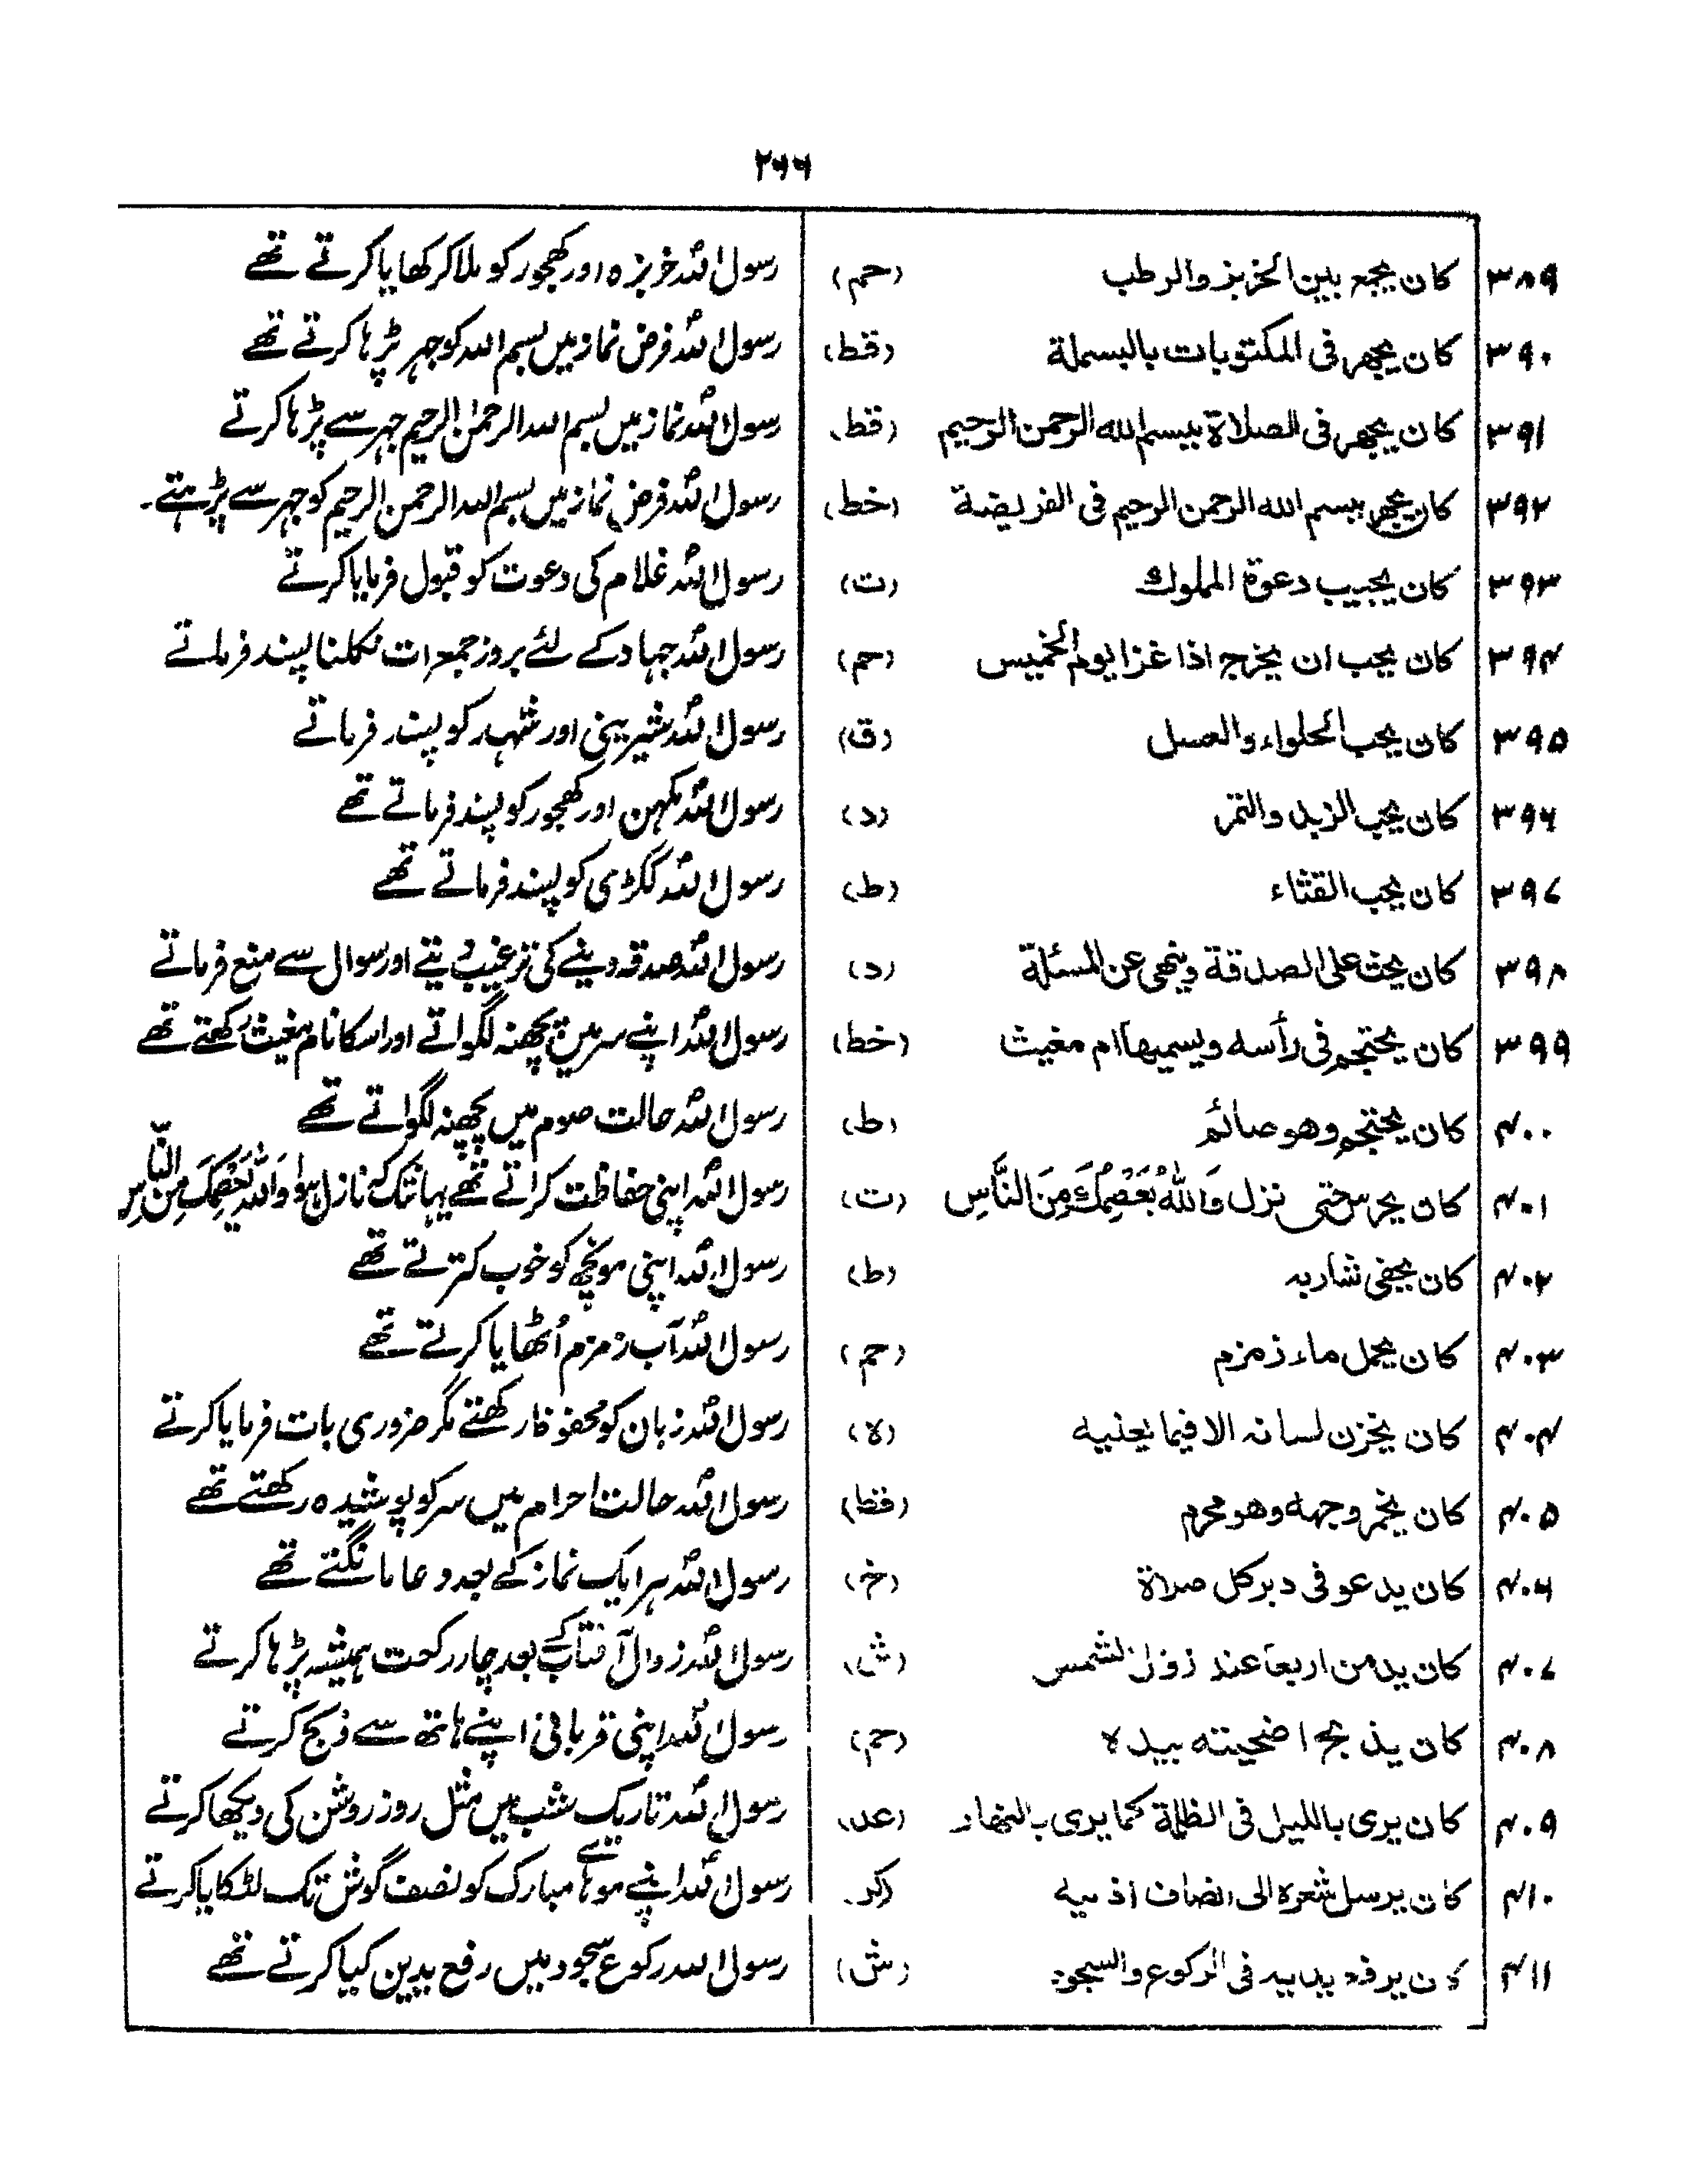 ۲۶۶
۳۸۹ کان یجمع بین الخربز والرطب (حم) رسول اللہ خربزہ اور کھجور کو ملا کر کھایا کرتے تھے
۳۹۰ کان یجهر فی المکتوبات بالبسملة (قط) رسول اللہ فرض نماز میں بسم اللہ کو جہر پڑہا کرتے تھے
۳۹۱ کان یجهر فی الصلاة ببسم الله الرحمن الرحیم (قط) رسول اللہ نماز میں بسم اللہ الرحمٰن الرحیم جہر سے پڑہا کرتے
۳۹۲ کان یجهر ببسم الله الرحمن الرحیم فی الفریضة (خط) رسول اللہ فرض نماز میں بسم اللہ الرحمن الرحیم کو جہر سے پڑہتے۔
۳۹۳ کان یجیب دعوة المملوك (ت) رسول اللہ غلام کی دعوت کو قبول فرمایا کرتے
۳۹۴ کان یحب ان یخرج اذا غزا یوم الخمیس (حم) رسول اللہ جہاد کے لئے بروز جمعرات نکلنا پسند فرماتے
۳۹۵ کان یحب الحلواء والعسل (ق) رسول اللہ شیرینی اور شہد کو پسند فرماتے
۳۹۶ کان یحب الزبد والتمر (د) رسول اللہ مکہن اور کھجور کو پسند فرماتے تھے
۳۹۷ کان یحب القثاء (ط) رسول اللہ ککڑی کو پسند فرماتے تھے
۳۹۸ کان یحث علی الصدقة وینهی عن المسئلة (د) رسول اللہ صدقہ دینے کی ترغیب دیتے اور سوال سے منع فرماتے
۳۹۹ کان یحتجم فی رأسه ویسمیها ام مغیث (خط) رسول اللہ اپنے سر میں پچھنہ لگواتے اور اسکا نام مغیث رکھتے تھے
۴۰۰ کان یحتجم وهو صائم (ط) رسول اللہ حالت صوم میں پچھنہ لگواتے تھے
۴۰۱ کان یحرس حتی نزل وَاللّٰهُ یَعْصِمُكَ مِنَ النَّاسِ (ت) رسول اللہ اپنی حفاظت کراتے تھے یہانتک کہ نازل ہوا وَاللّٰهُ یَعْصِمُكَ مِنَ النَّاسِ
۴۰۲ کان یحفی شاربه (ط) رسول اللہ اپنی مونچھ کو خوب کترتے تھے
۴۰۳ کان یحمل ماء زمزم (حم) رسول اللہ آب زمزم اُٹھایا کرتے تھے
۴۰۴ کان یخزن لسانه الا فیما یعنیه (ه) رسول اللہ زبان کو محفوظ رکھتے مگر ضروری بات فرمایا کرتے
۴۰۵ کان یخمر وجهه وهو محرم (قط) رسول اللہ حالت احرام میں سر کو پوشیدہ رکھتے تھے
۴۰۶ کان یدعو فی دبر کل صلاة (خ) رسول اللہ ہر ایک نماز کے بعد دعا مانگتے تھے
۴۰۷ کان یدمن اربعا عند زوال الشمس (ش) رسول اللہ زوال آفتاب کے بعد چار رکعت ہمیشہ پڑہا کرتے
۴۰۸ کان یذبح اضحیته بیده (حم) رسول اللہ اپنی قربانی اپنے ہاتھ سے ذبح کرتے
۴۰۹ کان یری باللیل فی الظلمة کما یری بالنهار (عد) رسول اللہ تاریک شب میں مثل روز روشن کی دیکھا کرتے
۴۱۰ کان یرسل شعره الی انصاف اذنیه (کر) رسول اللہ اپنے موہائے مبارک کو نصف گوش تک لٹکایا کرتے
۴۱۱ کان یرفع یدیه فی الرکوع والسجود (ش) رسول اللہ رکوع سجود میں رفع یدین کیا کرتے تھے